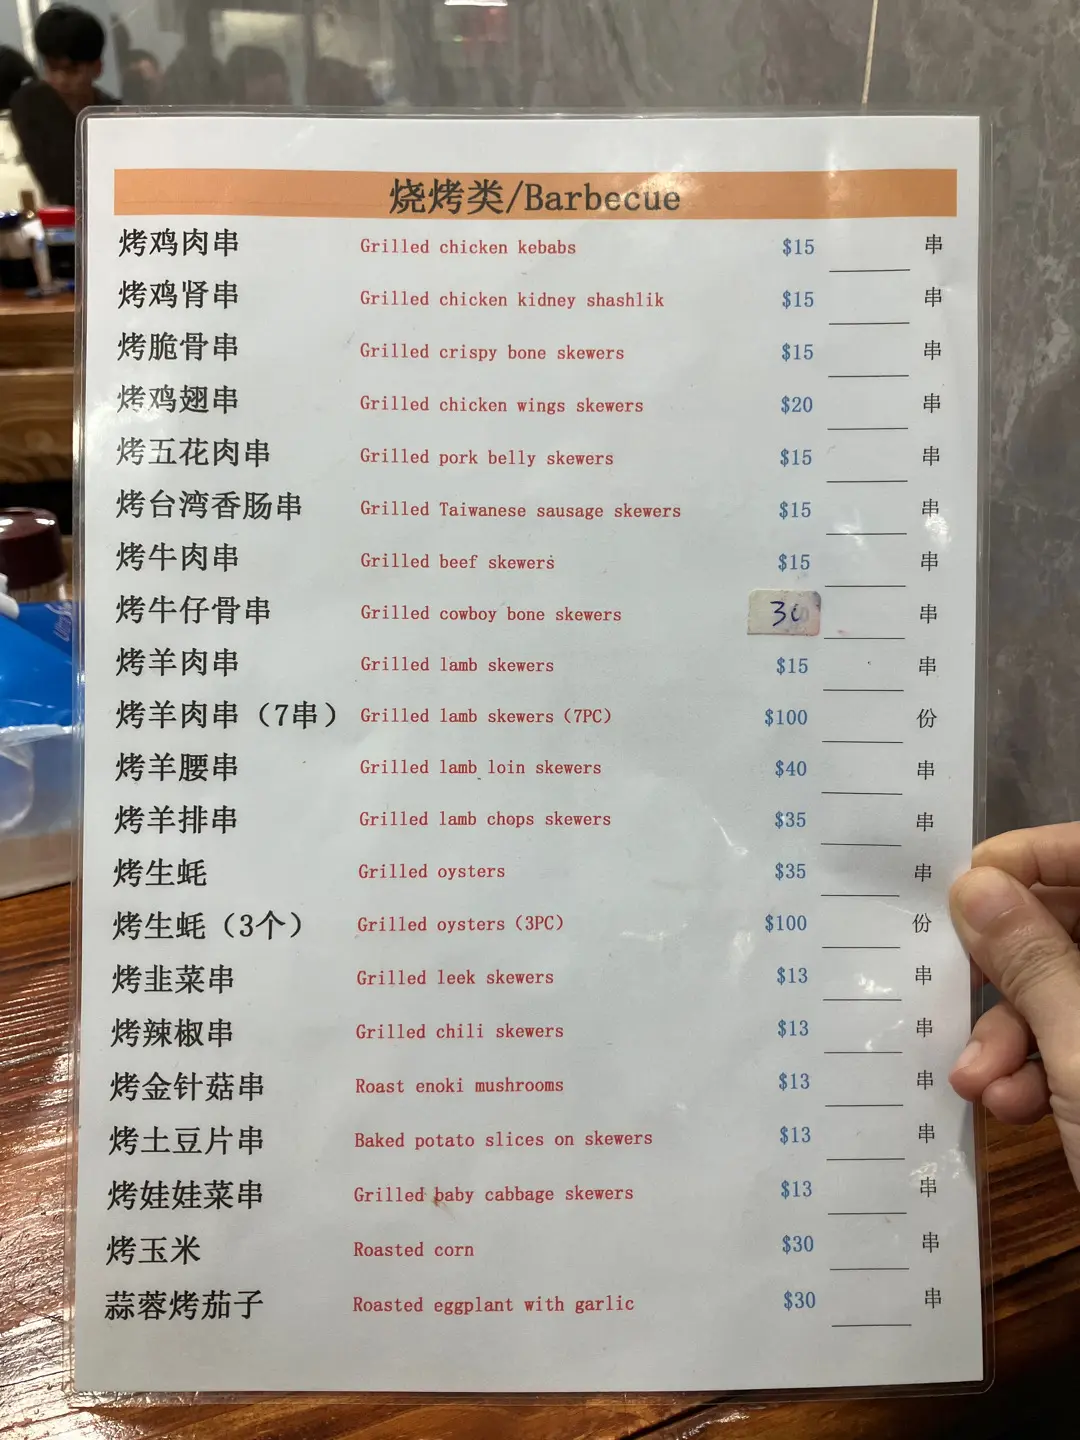 烧烤类/Barbecue
烤鸡肉串 Grilled chicken kebabs $15 串
烤鸡肾串 Grilled chicken kidney shashlik $15 串
烤脆骨串 Grilled crispy bone skewers $15 串
烤鸡翅串 Grilled chicken wings skewers $20 串
烤五花肉串 Grilled pork belly skewers $15 串
烤台湾香肠串 Grilled Taiwanese sausage skewers $15 串
烤牛肉串 Grilled beef skewers $15 串
烤牛仔骨串 Grilled cowboy bone skewers 30 串
烤羊肉串 Grilled lamb skewers $15 串
烤羊肉串（7串） Grilled lamb skewers（7PC） $100 份
烤羊腰串 Grilled lamb loin skewers $40 串
烤羊排串 Grilled lamb chops skewers $35 串
烤生蚝 Grilled oysters $35 串
烤生蚝（3个） Grilled oysters（3PC） $100 份
烤韭菜串 Grilled leek skewers $13 串
烤辣椒串 Grilled chili skewers $13 串
烤金针菇串 Roast enoki mushrooms $13 串
烤土豆片串 Baked potato slices on skewers $13 串
烤娃娃菜串 Grilled baby cabbage skewers $13 串
烤玉米 Roasted corn $30 串
蒜蓉烤茄子 Roasted eggplant with garlic $30 串